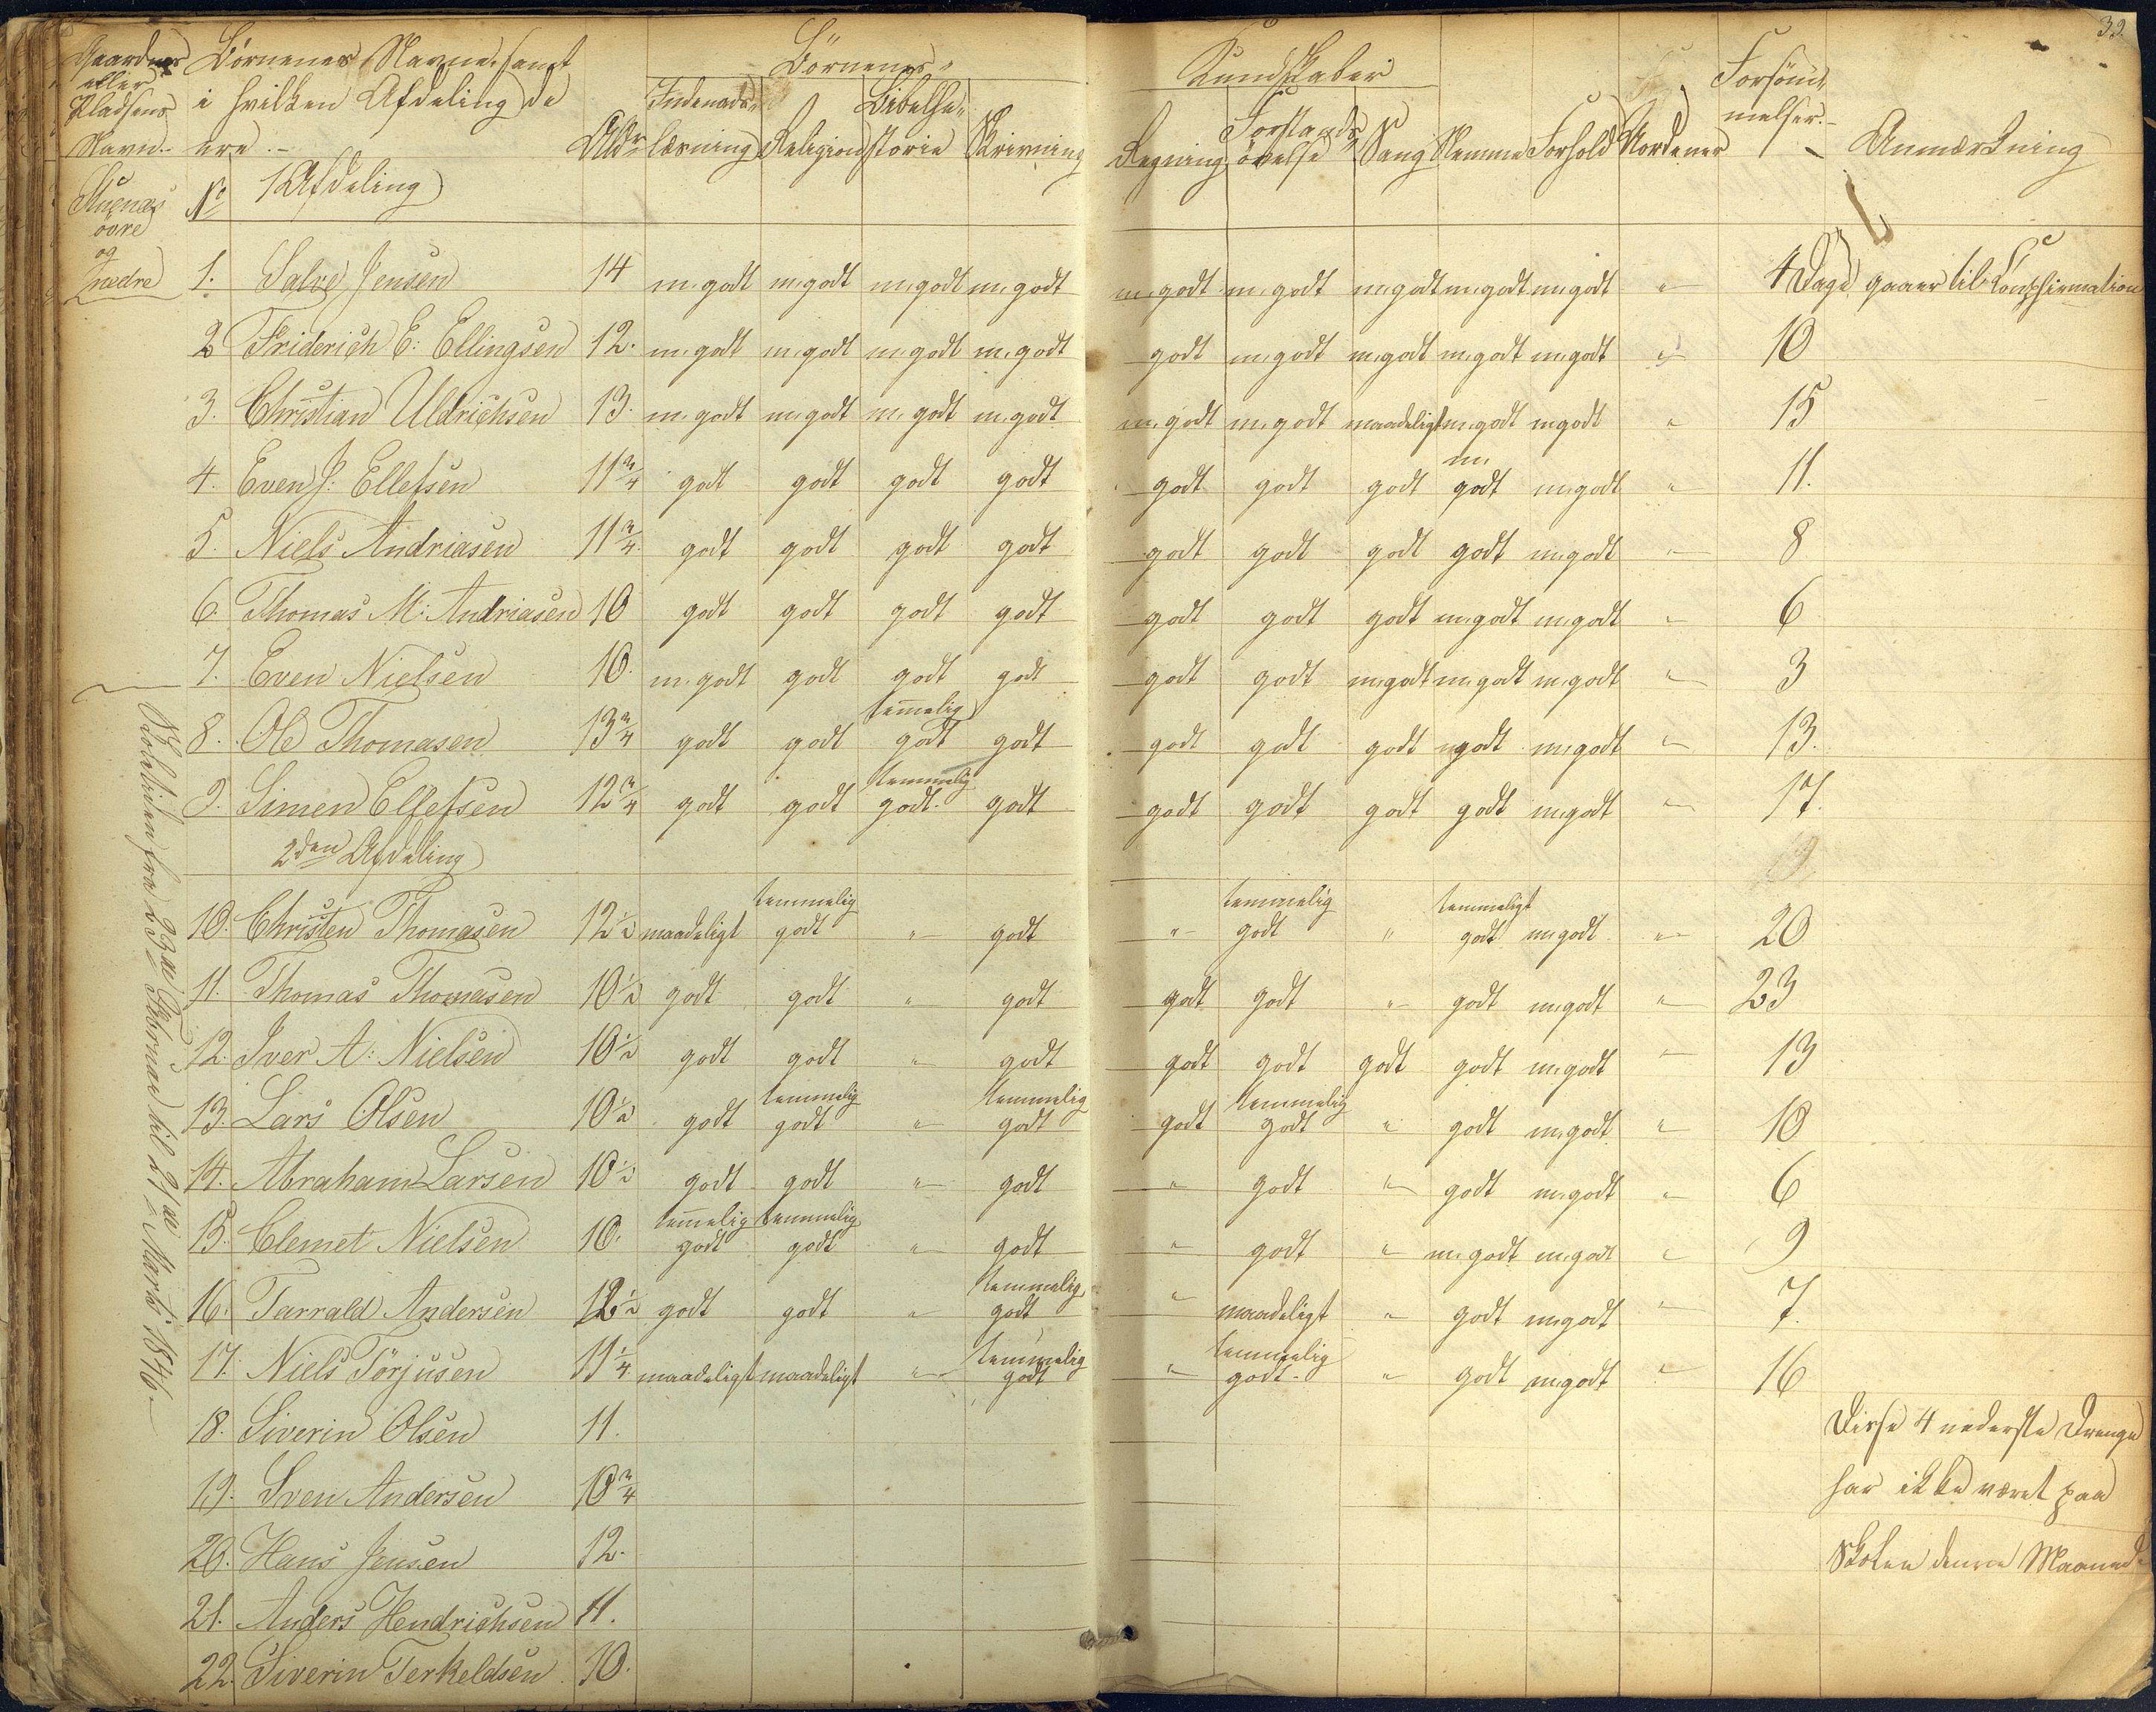 39.
Gaardens eller Pladsens Navn.- Børnenes Navne, samt i hvilken Afdeling de ere.- Alder Børnenes Kundskaber Forsømmelser.- Anmærkning
Indenadslæsning Religion Bibelhistorie Skrivning Regning Forstandsøvelse Sang Nemme Forhold Uordener
Stuenæs øvre og nedre
No 1 Afdeling
1. Salve Jensen 14 m.godt m.godt m.godt m.godt m.godt m.godt m.godt m.godt m.godt " 4 Dage gaaer til Confirmation
2 Friderich E: Ellingsen 12. m.godt m.godt m.godt m.godt godt m.godt m.godt m.godt m.godt " 10
3. Christian Uldrichsen 13. m.godt m.godt m.godt m.godt m.godt m.godt maadeligt m.godt m.godt " 15
4. Even J: Ellefsen 11 3/4 godt godt godt godt godt godt godt m. godt m.godt " 11.
5. Niels Andriasen 11 3/4. godt godt godt godt godt godt godt godt m.godt " 8
6. Thomas M: Andriasen 10 godt godt godt godt godt godt godt m.godt m.godt " 6
7. Even Nielsen 10. m.godt godt godt godt godt godt m.godt m.godt m.godt " 3
8. Ole Thomasen 13 3/4 godt godt tem̅elig godt godt godt godt godt m.godt m.godt " 13.
9. Simen Ellefsen 12 3/4 godt godt temmelig godt. godt godt godt godt godt m.godt " 17.
2den Afdeling
10. Christen Thomasen 12 1/2 maadeligt temmelig godt " godt " temmelig godt " temmeligt godt m.godt " 20
11. Thomas Thomasen 10 1/2 godt godt " godt godt godt " godt m.godt " 23
12. Iver A: Nielsen 10 1/2 godt godt " godt godt godt godt godt m.godt " 13
13. Lars Olsen 10 1/2 godt temmelig godt " temmelig godt godt temmelig godt " godt m.godt " 10
14. Abraham Larsen 10 1/2 godt godt " godt " godt " godt m.godt " 6
15. Clemet Nielsen 10. tem̅elig godt temmelig godt " godt " godt " m.godt m.godt " 9
16. Tarrald Andersen 12 1/2 godt godt " temmelig godt " maadeligt " godt m.godt " 7.
17. Niels Törjusen 11 1/4. maadeligt maadeligt " temmelig godt " temmelig godt. " godt m.godt " 16
18. Siverin Olsen 11. Disse 4 nederste Drenge
19. Sven Andersen 10 3/4 har ikke været paa
20. Hans Jensen 12. Skolen denne Maaned.
21. Anders Hendrichsen 11.
22. Siverin Terkeldsen 10.
Skoletiden fra 23de Februar til 21de Marts 1846.-